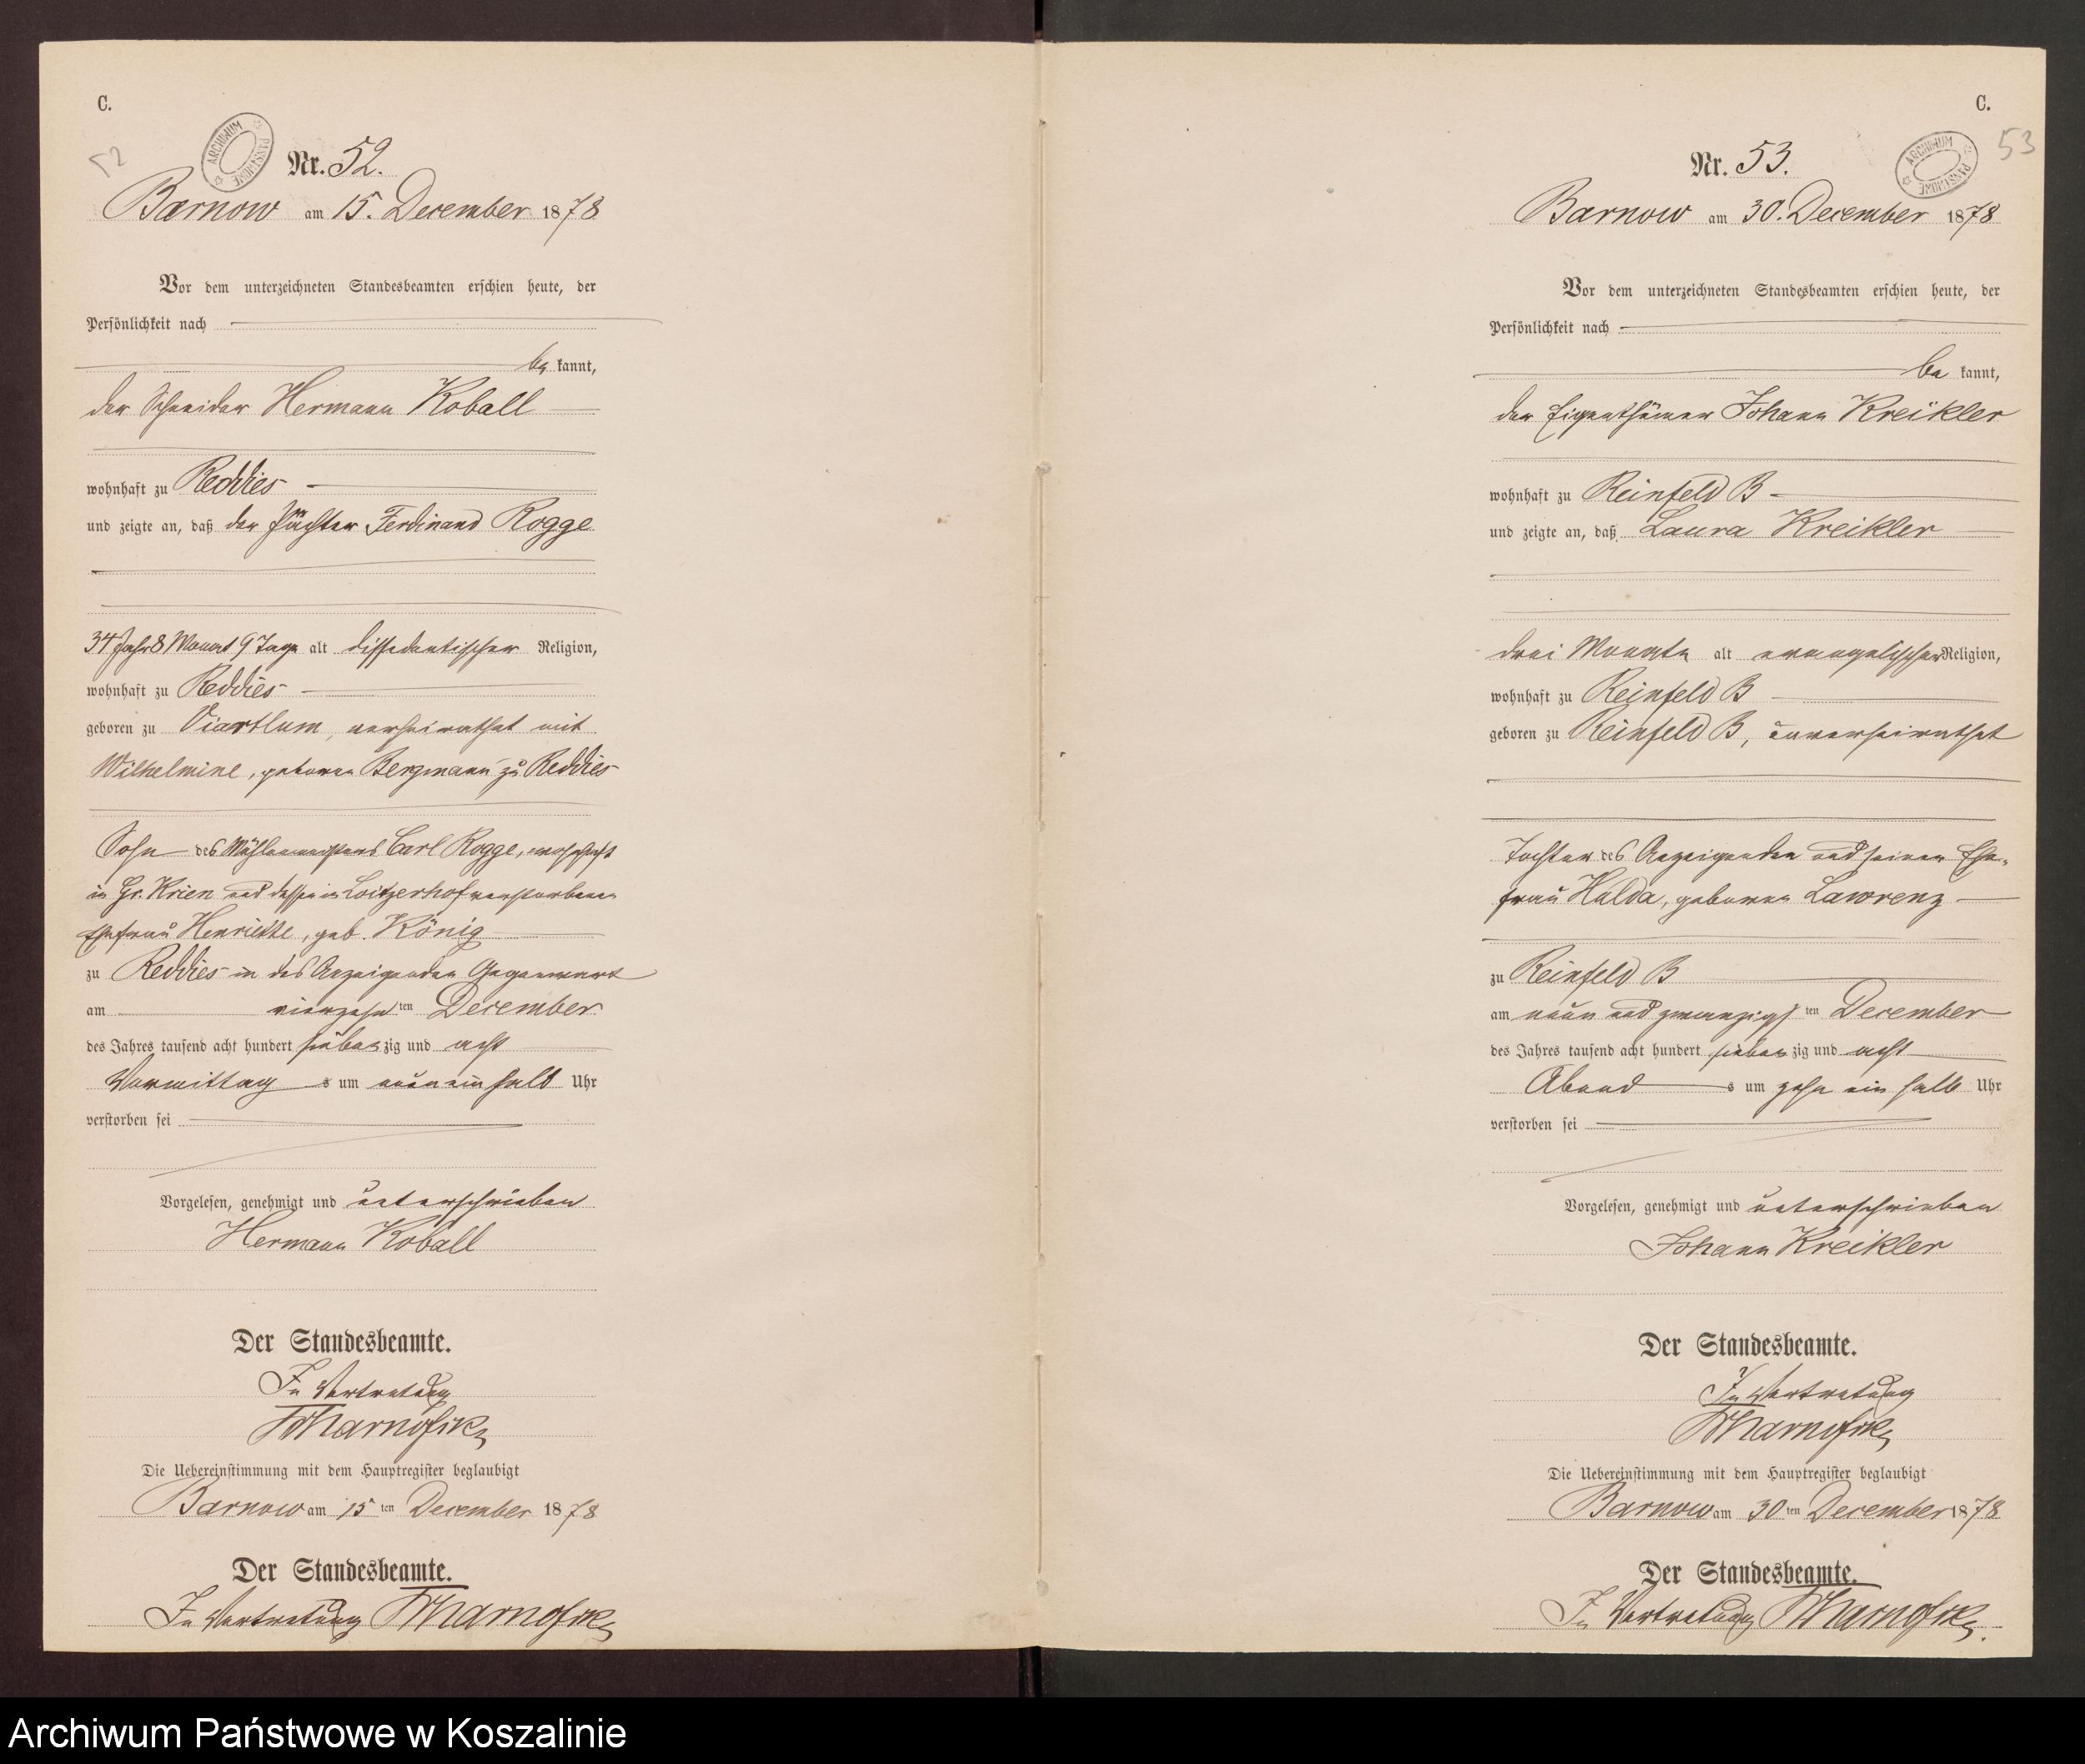 C.
52
ARCHIWUM PAŃSTWOWE
Nr. 52.
Barnow am 15. December 1878
Vor dem unterzeichneten Standesbeamten erschien heute, der
Persönlichkeit nach
be kannt,
der Schneider Hermann Koball
wohnhaft zu Reddies
und zeigte an, daß der Pächter Ferdinand Rogge
34 Jahr 8 Monat 9 Tage alt dissidentischer Religion,
wohnhaft zu Reddies
geboren zu Viartlum, verheirathet mit
Wilhelmine, geboren Bergmann zu Reddies
Sohn des Mühlenmeisters Carl Rogge, wohnhaft
in Gr. Krien und dessen in Loitzerhof verstorbenen
Ehefrau Henriette, geb. König
zu Reddies in des Anzeigenden Gegenwart
am vierzehn ten December
des Jahres tausend acht hundert sieben zig und acht
Vormittag s um neun ein halb Uhr
verstorben sei
Vorgelesen, genehmigt und unterschrieben
Hermann Koball
Der Standesbeamte.
In Vertretung
Die Uebereinstimmung mit dem Hauptregister beglaubigt
Barnow am 15 ten December 1878
Der Standesbeamte.
In Vertretung
C.
53
ARCHIWUM PAŃSTWOWE
Nr. 53.
Barnow am 30. December 1878
Vor dem unterzeichneten Standesbeamten erschien heute, der
Persönlichkeit nach
be kannt,
der Eigenthümer Johann Kreikler
wohnhaft zu Reinfeld B
und zeigte an, daß Laura Kreikler
drei Monate alt evangelischer Religion,
wohnhaft zu Reinfeld B
geboren zu Reinfeld B, unverheirathet
Tochter des Anzeigenden und seiner Ehe-
frau Hulda, geboren Lawrenz
zu Reinfeld B
am neun und zwanzigs ten December
des Jahres tausend acht hundert sieben zig und acht
Abend s um zehn ein halb Uhr
verstorben sei
Vorgelesen, genehmigt und unterschrieben
Johann Kreikler
Der Standesbeamte.
In Vertretung
Die Uebereinstimmung mit dem Hauptregister beglaubigt
Barnow am 30 ten December 1878
Der Standesbeamte.
In Vertretung
Archiwum Państwowe w Koszalinie